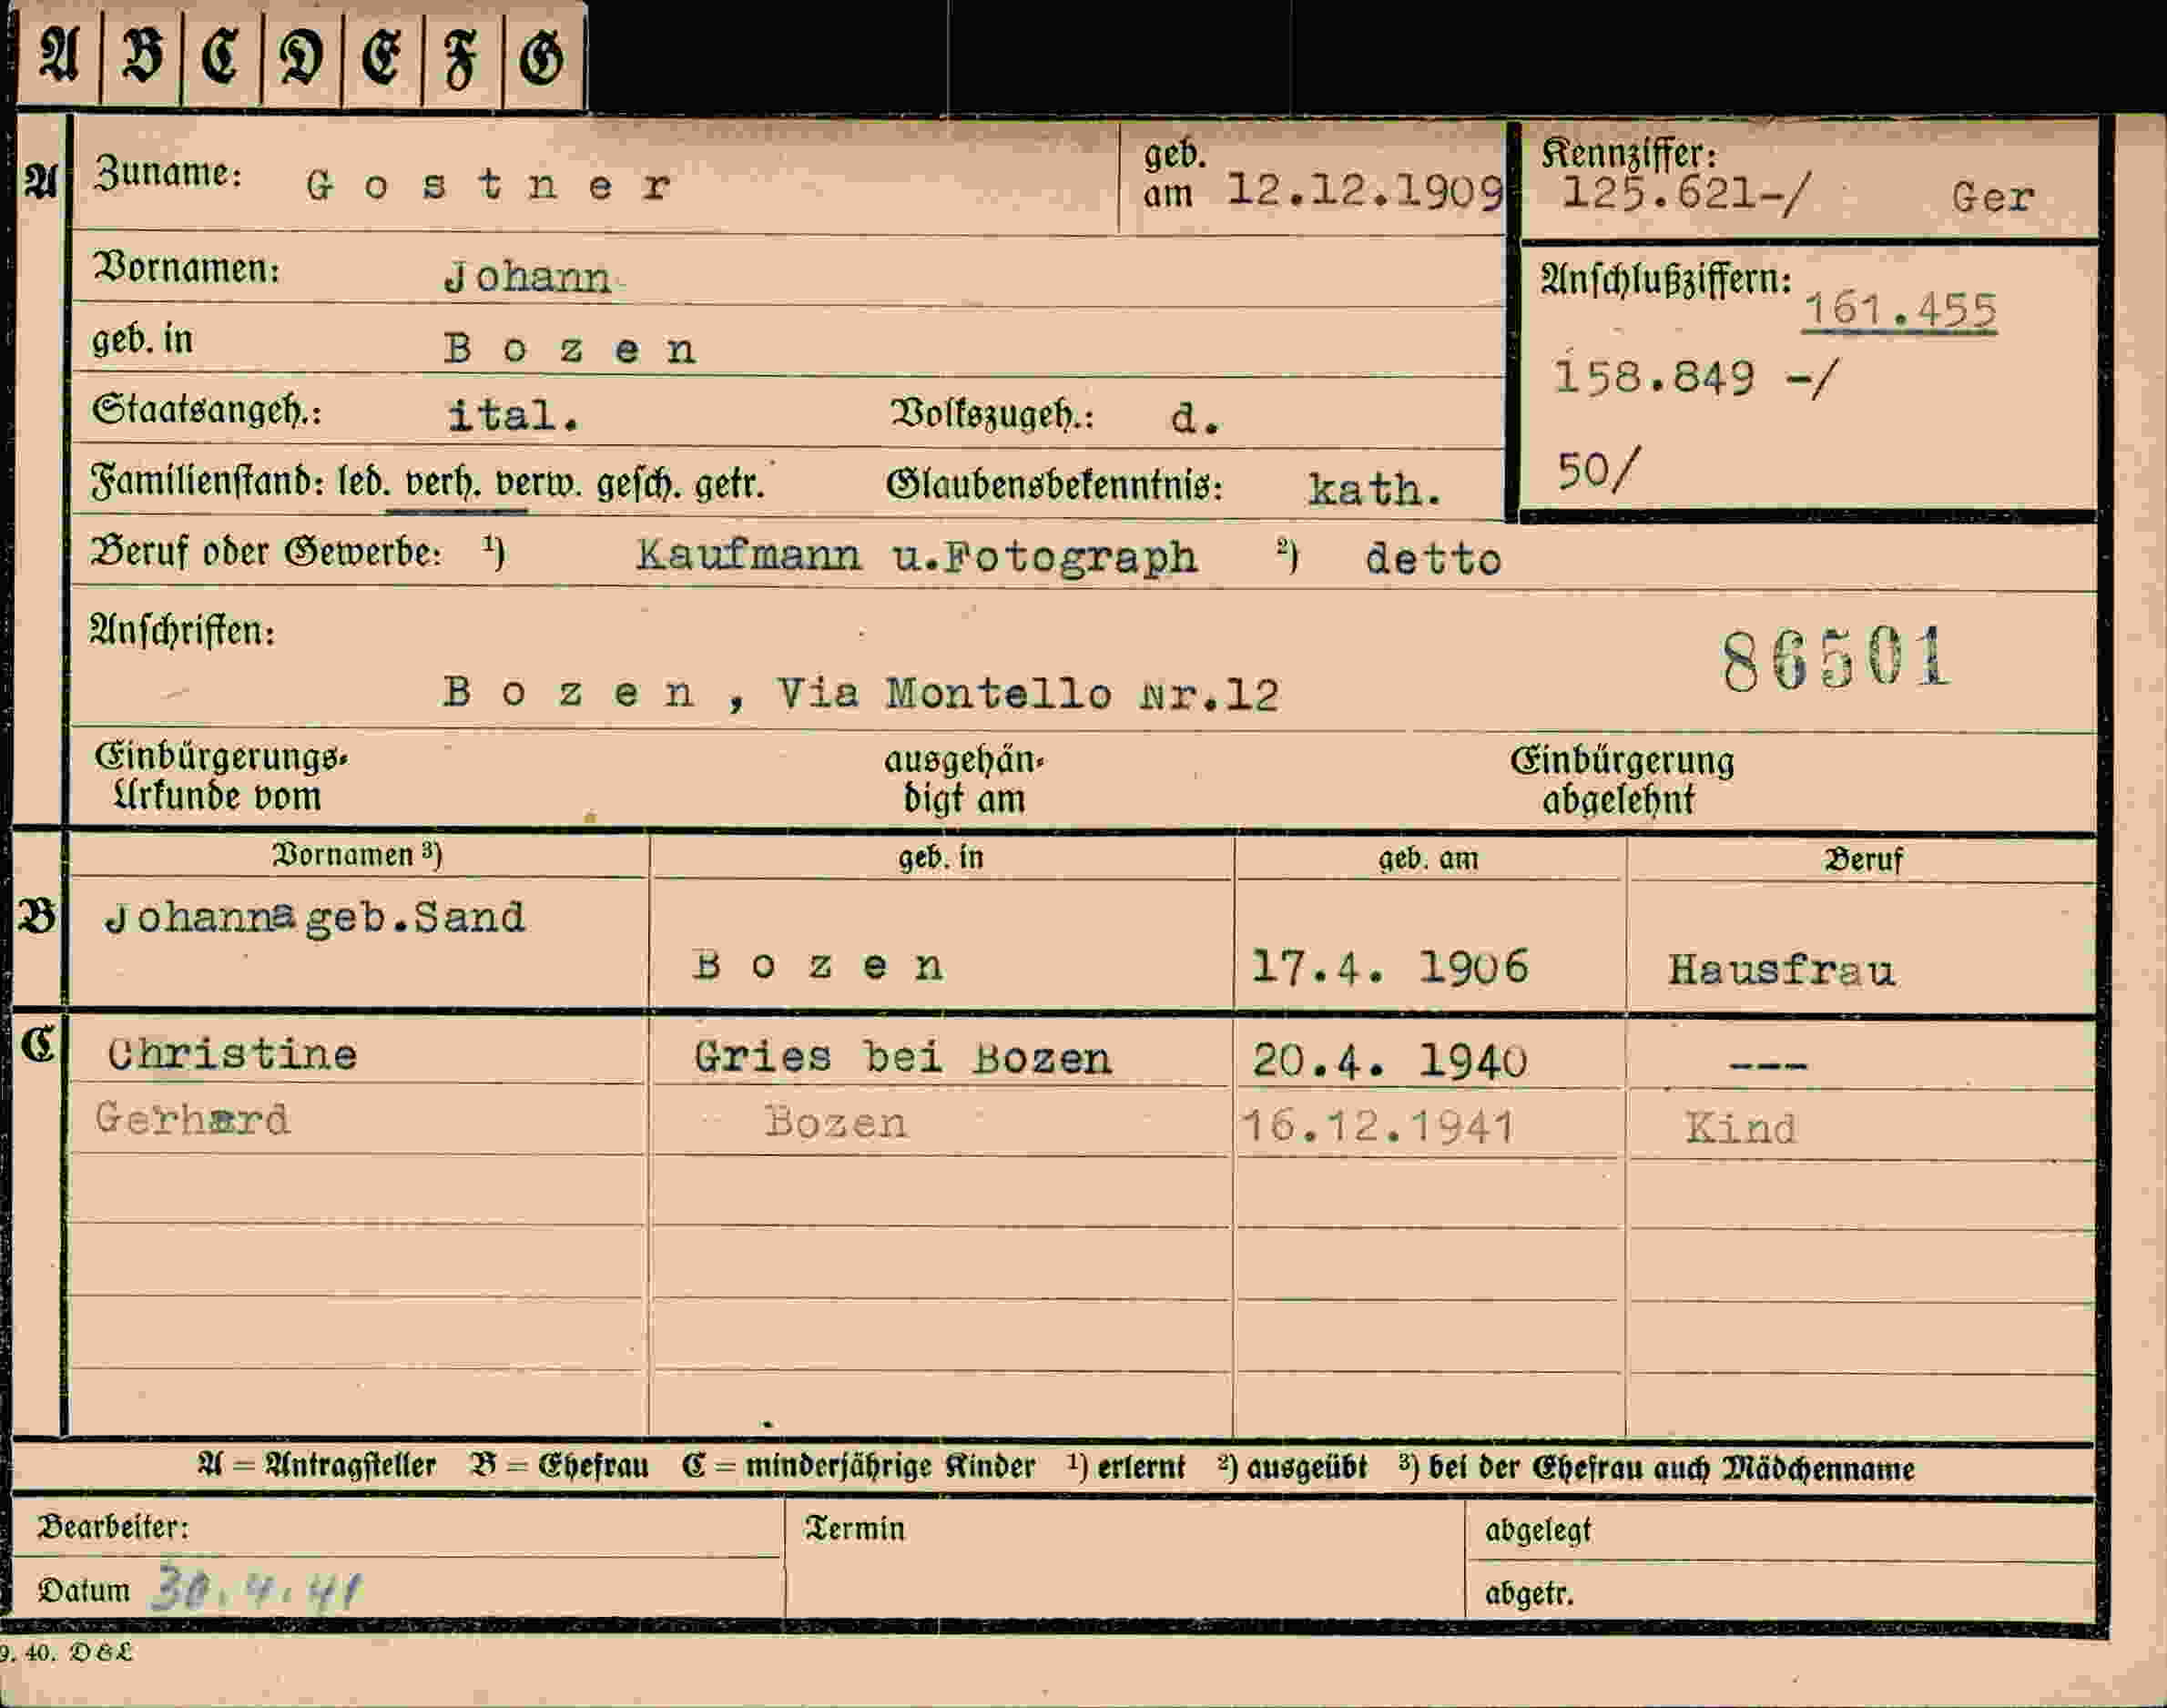 A B C D E F G
A Zuname: Gostner geb. am 12.12.1909 Kennziffer: 125.621-/ Ger
Vornamen: Johann
Anschlußziffern: 161.455
geb. in Bozen
158.849 -/
Staatsangeh.: ital. Volkszugeh.: d.
Familienstand: led. verh. verw. gesch. getr. Glaubensbekenntnis: kath.
50/
Beruf oder Gewerbe: 1) Kaufmann u.Fotograph 2) detto
Anschriften:
86501
Bozen, Via Montello Nr.12
Einbürgerungs-Urkunde vom ausgehän-digt am Einbürgerung abgelehnt
Vornamen 3) geb. in geb. am Beruf
B Johanna geb.Sand
Bozen 17.4. 1906 Hausfrau
C Christine Gries bei Bozen 20.4. 1940 ---
Gerhard Bozen 16.12.1941 Kind
A = Antragsteller B = Ehefrau C = minderjährige Kinder 1) erlernt 2) ausgeübt 3) bei der Ehefrau auch Mädchenname
Bearbeiter: Termin abgelegt
Datum 30.4.41 abgetr.
9. 40. D&L